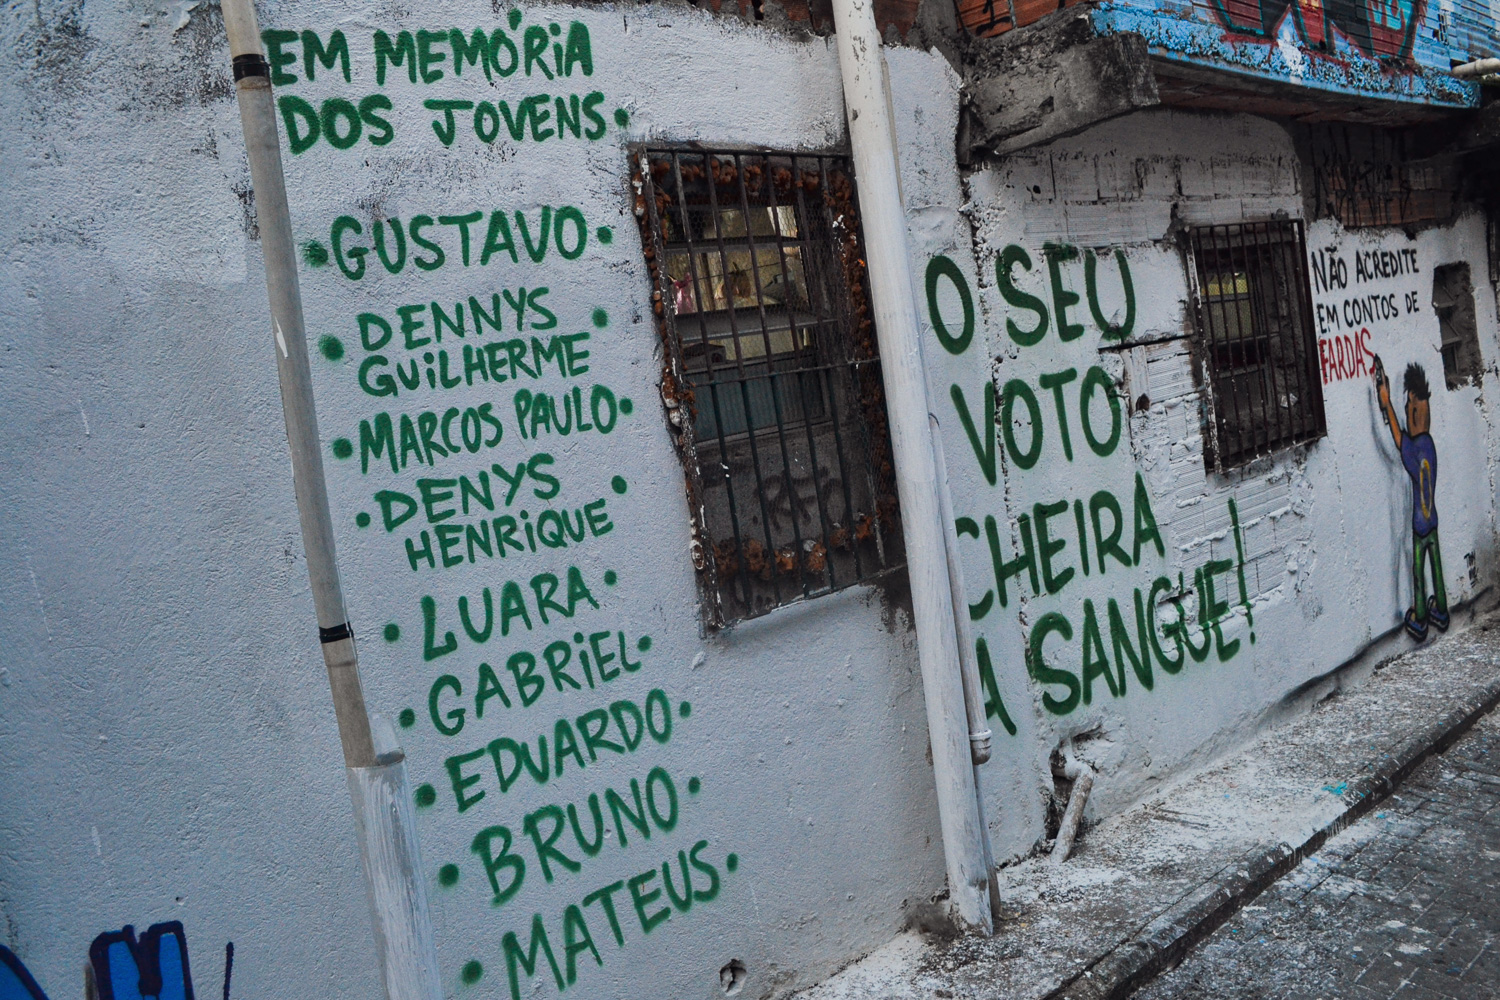 EM MEMÓRIA
DOS JOVENS.
•GUSTAVO•
•DENNYS•
GUILHERME
•MARCOS PAULO•
•DENYS•
HENRIQUE
•LUARA•
•GABRIEL•
•EDUARDO•
•BRUNO•
•MATEUS•
O SEU
VOTO
CHEIRA
A SANGUE!
NÃO ACREDITE
EM CONTOS DE
FARDAS